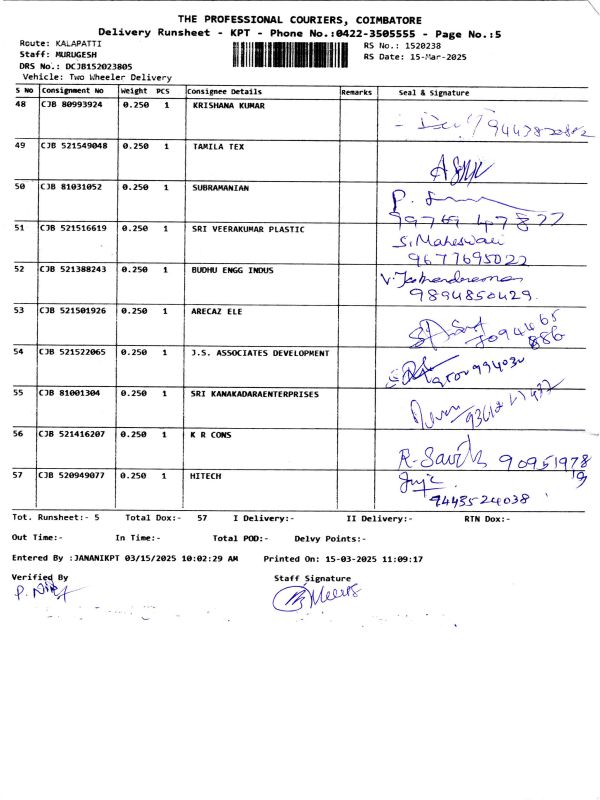 THE PROFESSIONAL COURIERS, COIMBATORE
Delivery Runsheet - KPT - Phone No.:0422-3505555 - Page No.:5
Route: KALAPATTI
Staff: MURUGESH
DRS No.: DCJB152023805
Vehicle: Two Wheeler Delivery
RS No.: 1520238
RS Date: 15-Mar-2025
S No Consignment No Weight PCS Consignee Details Remarks Seal & Signature
48 CJB 80993924 0.250 1 KRISHANA KUMAR
49 CJB 521549048 0.250 1 TAMILA TEX
50 CJB 81031052 0.250 1 SUBRAMANIAN
51 CJB 521516619 0.250 1 SRI VEERAKUMAR PLASTIC S. Maheswari
9677695022
52 CJB 521388243 0.250 1 BUDHU ENGG INDUS
9894850429
53 CJB 521501926 0.250 1 ARECAZ ELE
54 CJB 521522065 0.250 1 J.S. ASSOCIATES DEVELOPMENT
55 CJB 81001304 0.250 1 SRI KANAKADARAENTERPRISES
56 CJB 521416207 0.250 1 K R CONS
57 CJB 520949077 0.250 1 HITECH
9443524038
Tot. Runsheet:- 5 Total Dox:- 57 I Delivery:- II Delivery:- RTN Dox:-
Out Time:- In Time:- Total POD:- Delvy Points:-
Entered By :JANANIKPT 03/15/2025 10:02:29 AM Printed On: 15-03-2025 11:09:17
Verified By Staff Signature